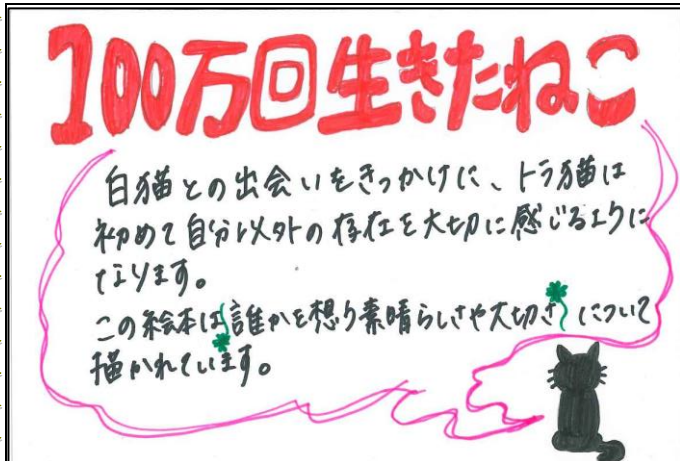 100万回生きたねこ
白猫との出会いをきっかけに、トラ猫は
初めて自分以外の存在を大切に感じるように
なります。
この絵本は誰かを想う素晴らしさや大切さについて
描かれています。